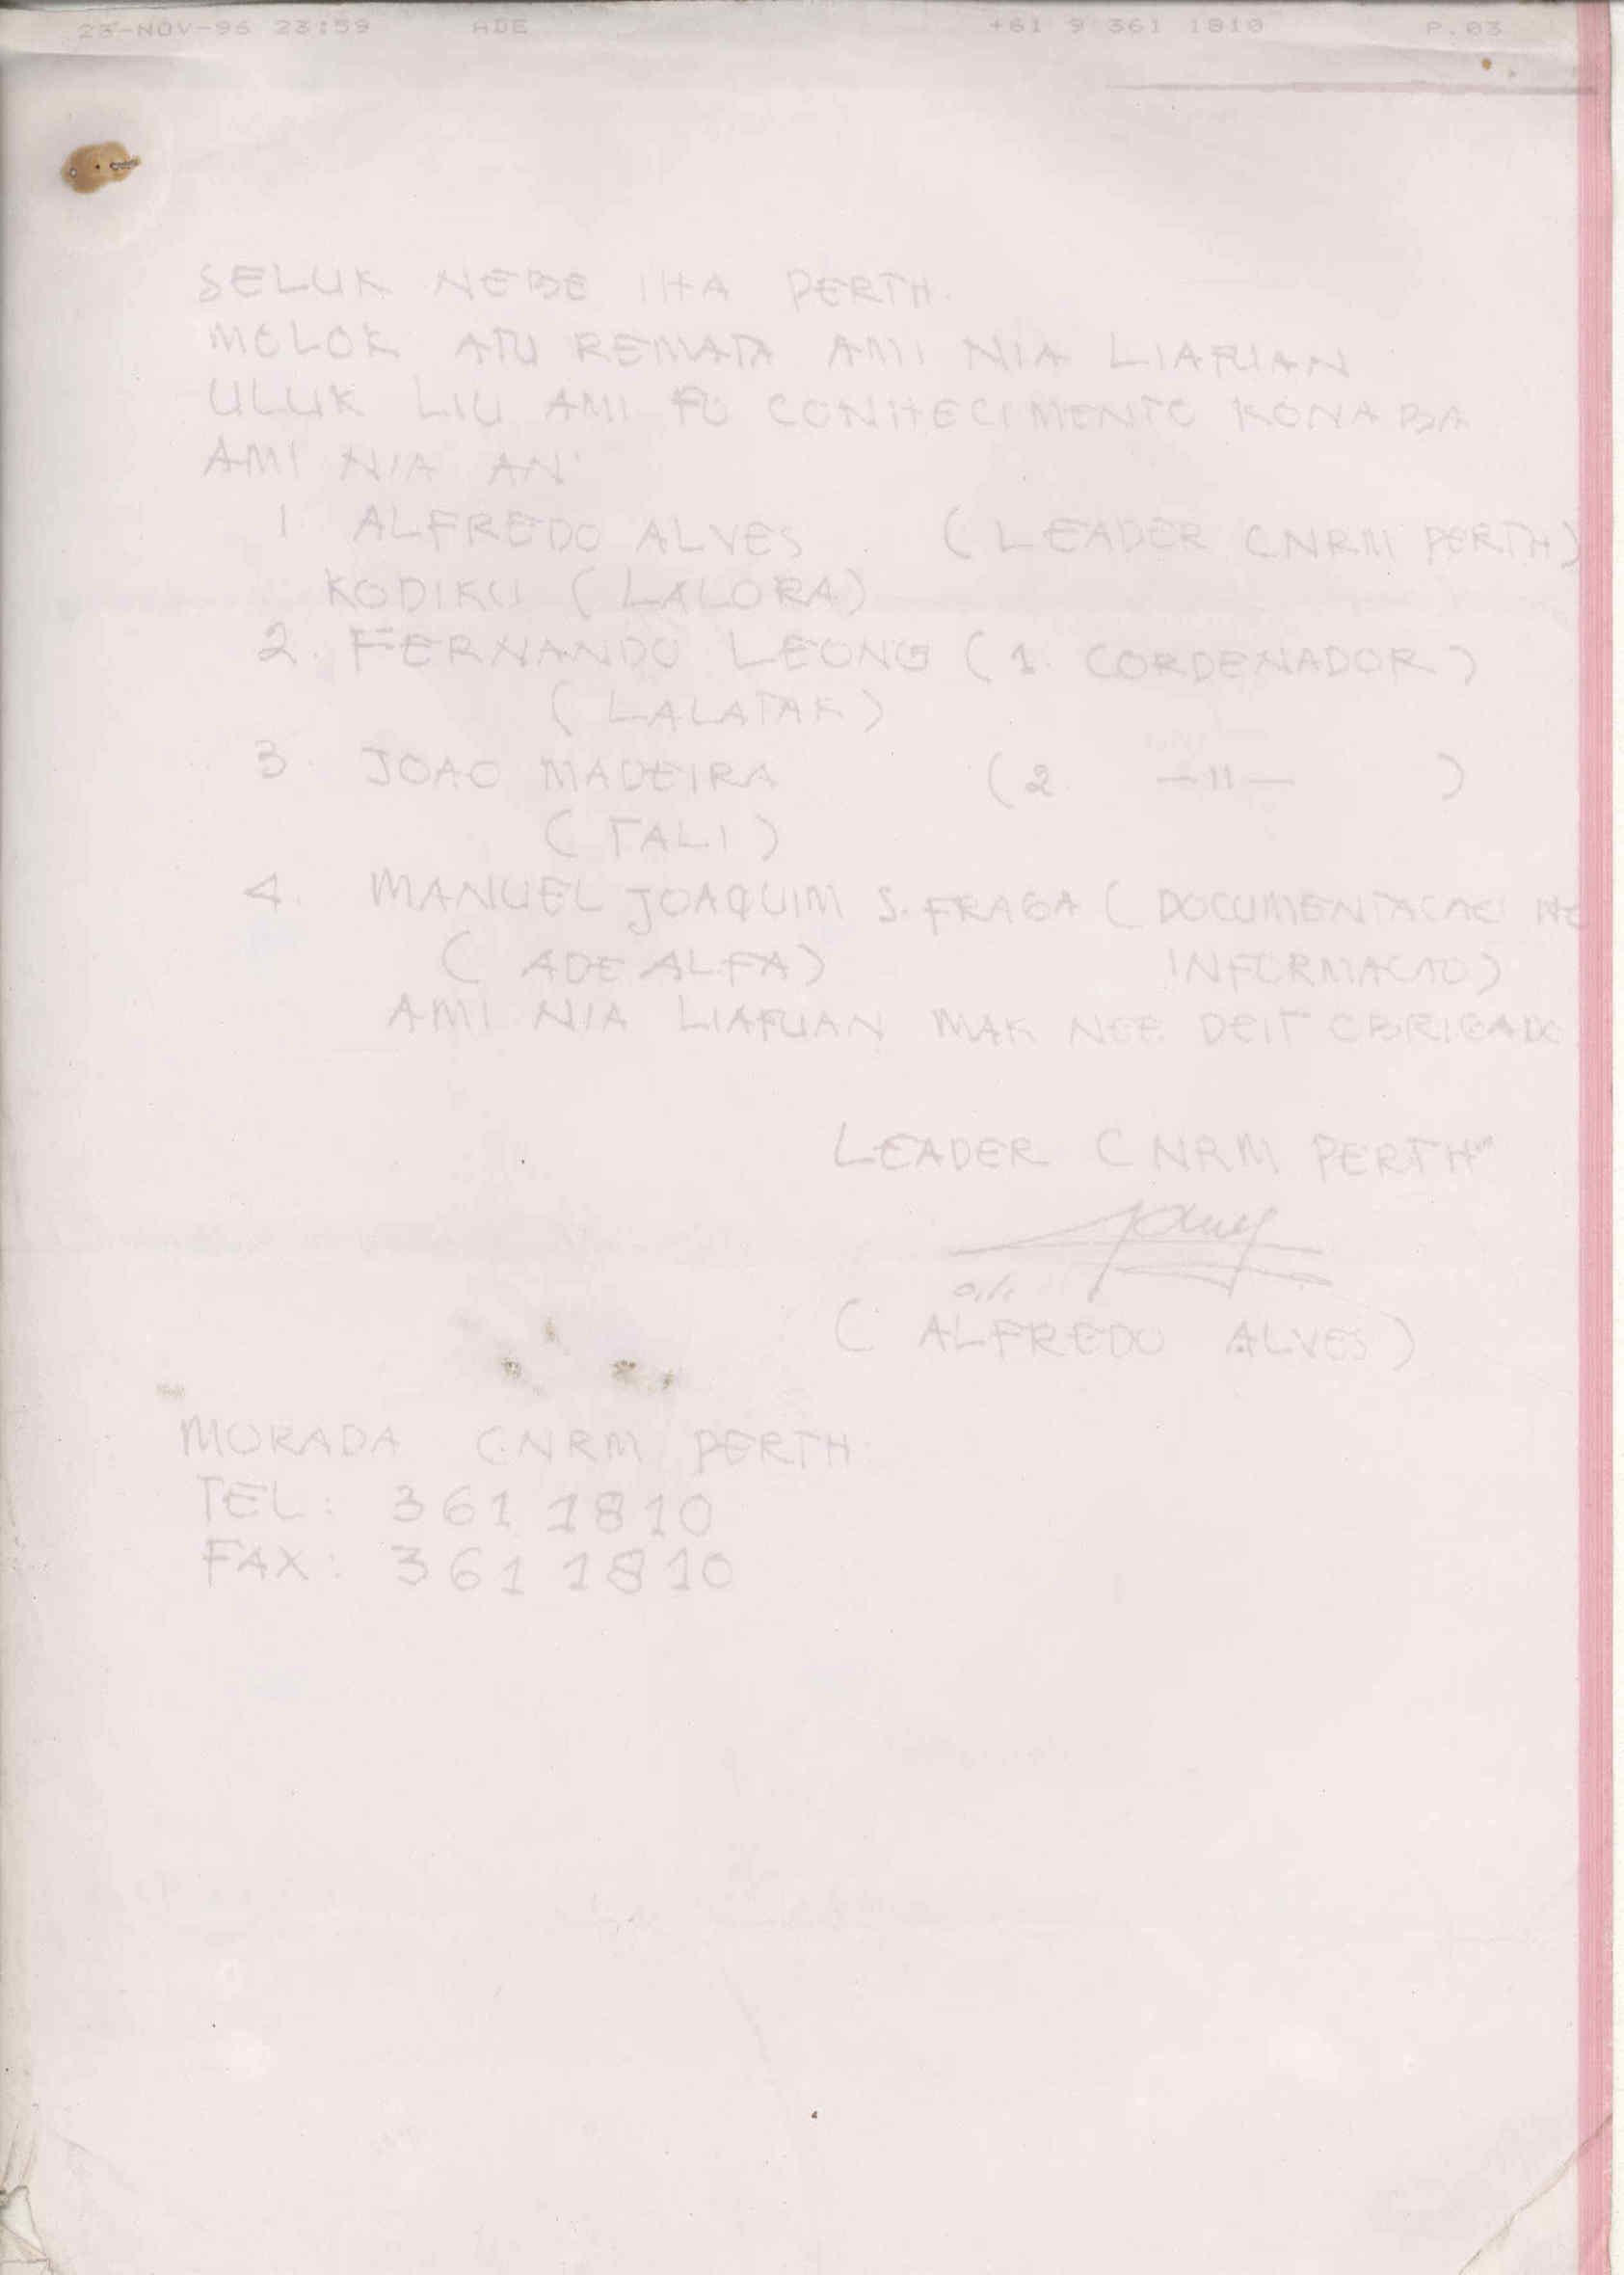 23-NOV-96 23:59 ADE +61 9 361 1810 P.03
SELUK NEBE IHA PERTH.
MOLOK ATU REMATA AMI NIA LIAFUAN
ULUK LIU AMI FO CONHECIMENTO KONA BA
AMI NIA AN
1 ALFREDO ALVES (LEADER CNRM PERTH)
KODIKU (LALORA)
2. FERNANDO LEONG (1. CORDENADOR)
(LALATAK)
3 JOAO MADEIRA (2. —11— )
(TALI)
4. MANUEL JOAQUIM S. FRAGA (DOCUMENTACAO HO
(ADE ALFA) INFORMACAO)
AMI NIA LIAFUAN MAK NEE DEIT OBRIGADO
LEADER CNRM PERTH
(ALFREDO ALVES)
MORADA CNRM PERTH
TEL: 361 1810
FAX: 361 1810